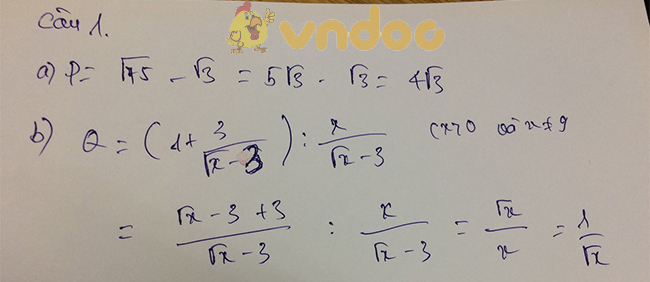 Câu 1.
vndoc
a) P = √75 - √3 = 5√3 - √3 = 4√3
b) Q = (1 + 3/(√x - 3)) : x/(√x - 3) (x>0 và x ≠ 9
= (√x - 3 + 3)/(√x - 3) : x/(√x - 3) = √x/x = 1/√x